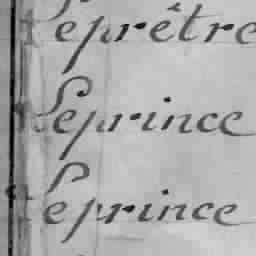 Leprêtre
Leprince
Leprince